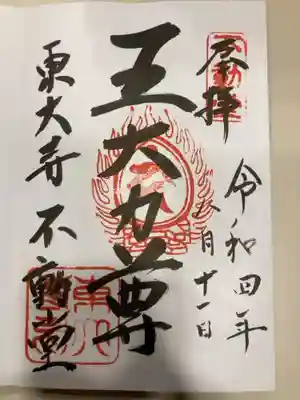 奉拝
令和四年
五月十一日
五大力尊
東大寺 不動堂